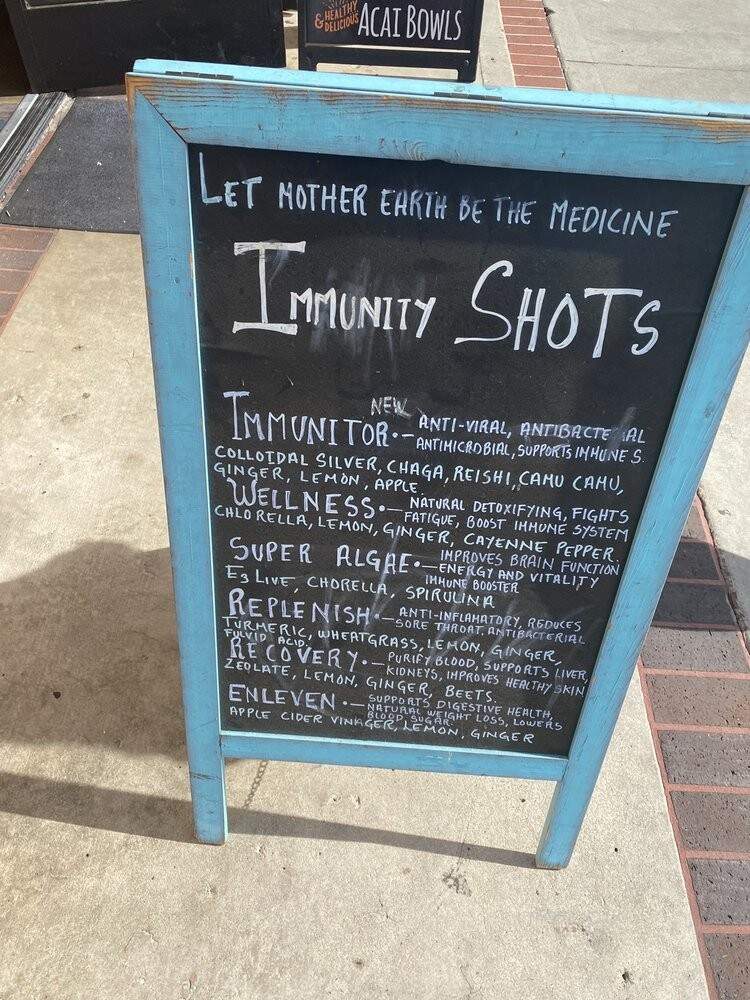 & HEALTHY
DELICIOUS
ACAI BOWLS
LET MOTHER EARTH BE THE MEDICINE
IMMUNITY SHOTS
NEW
IMMUNITOR.- ANTI-VIRAL, ANTIBACTE AL
ANTIMICROBIAL, SUPPORTS IMMUNE S.
COLLOIDAL SILVER, CHAGA, REISHI, CAMU CAMU,
GINGER, LEMON, APPLE.
WELLNESS.- NATURAL DETOXIFYING, FIGHTS
FATIGUE, BOOST IMMUNE SYSTEM
CHLORELLA, LEMON, GINGER, CAYENNE PEPPER.
SUPER ALGAE.- IMPROVES BRAIN FUNCTION
ENERGY AND VITALITY
IMMUNE BOOSTER
E3 LIVE, CHORELLA, SPIRULINA
REPLENISH.- ANTI-INFLAMATORY, REDUCES
SORE THROAT, ANTIBACTERIAL
TURMERIC, WHEATGRASS, LEMON, GINGER,
FULVID ACID.
RECOVERY.- PURIFY BLOOD, SUPPORTS LIVER,
KIDNEYS, IMPROVES HEALTHY SKIN
ZEOLATE, LEMON, GINGER, BEETS.
ENLEVEN.- SUPPORTS DIGESTIVE HEALTH,
NATURAL WEIGHT LOSS, LOWERS
BLOOD SUGAR
APPLE CIDER VINAGER, LEMON, GINGER